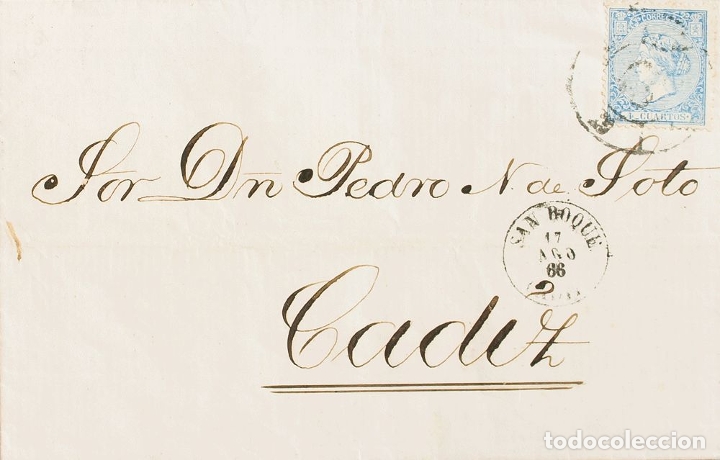 CUARTOS
Sor. Dn Pedro N. de Soto
SAN ROQUE
17
AGO
66
Cadiz
todocoleccion